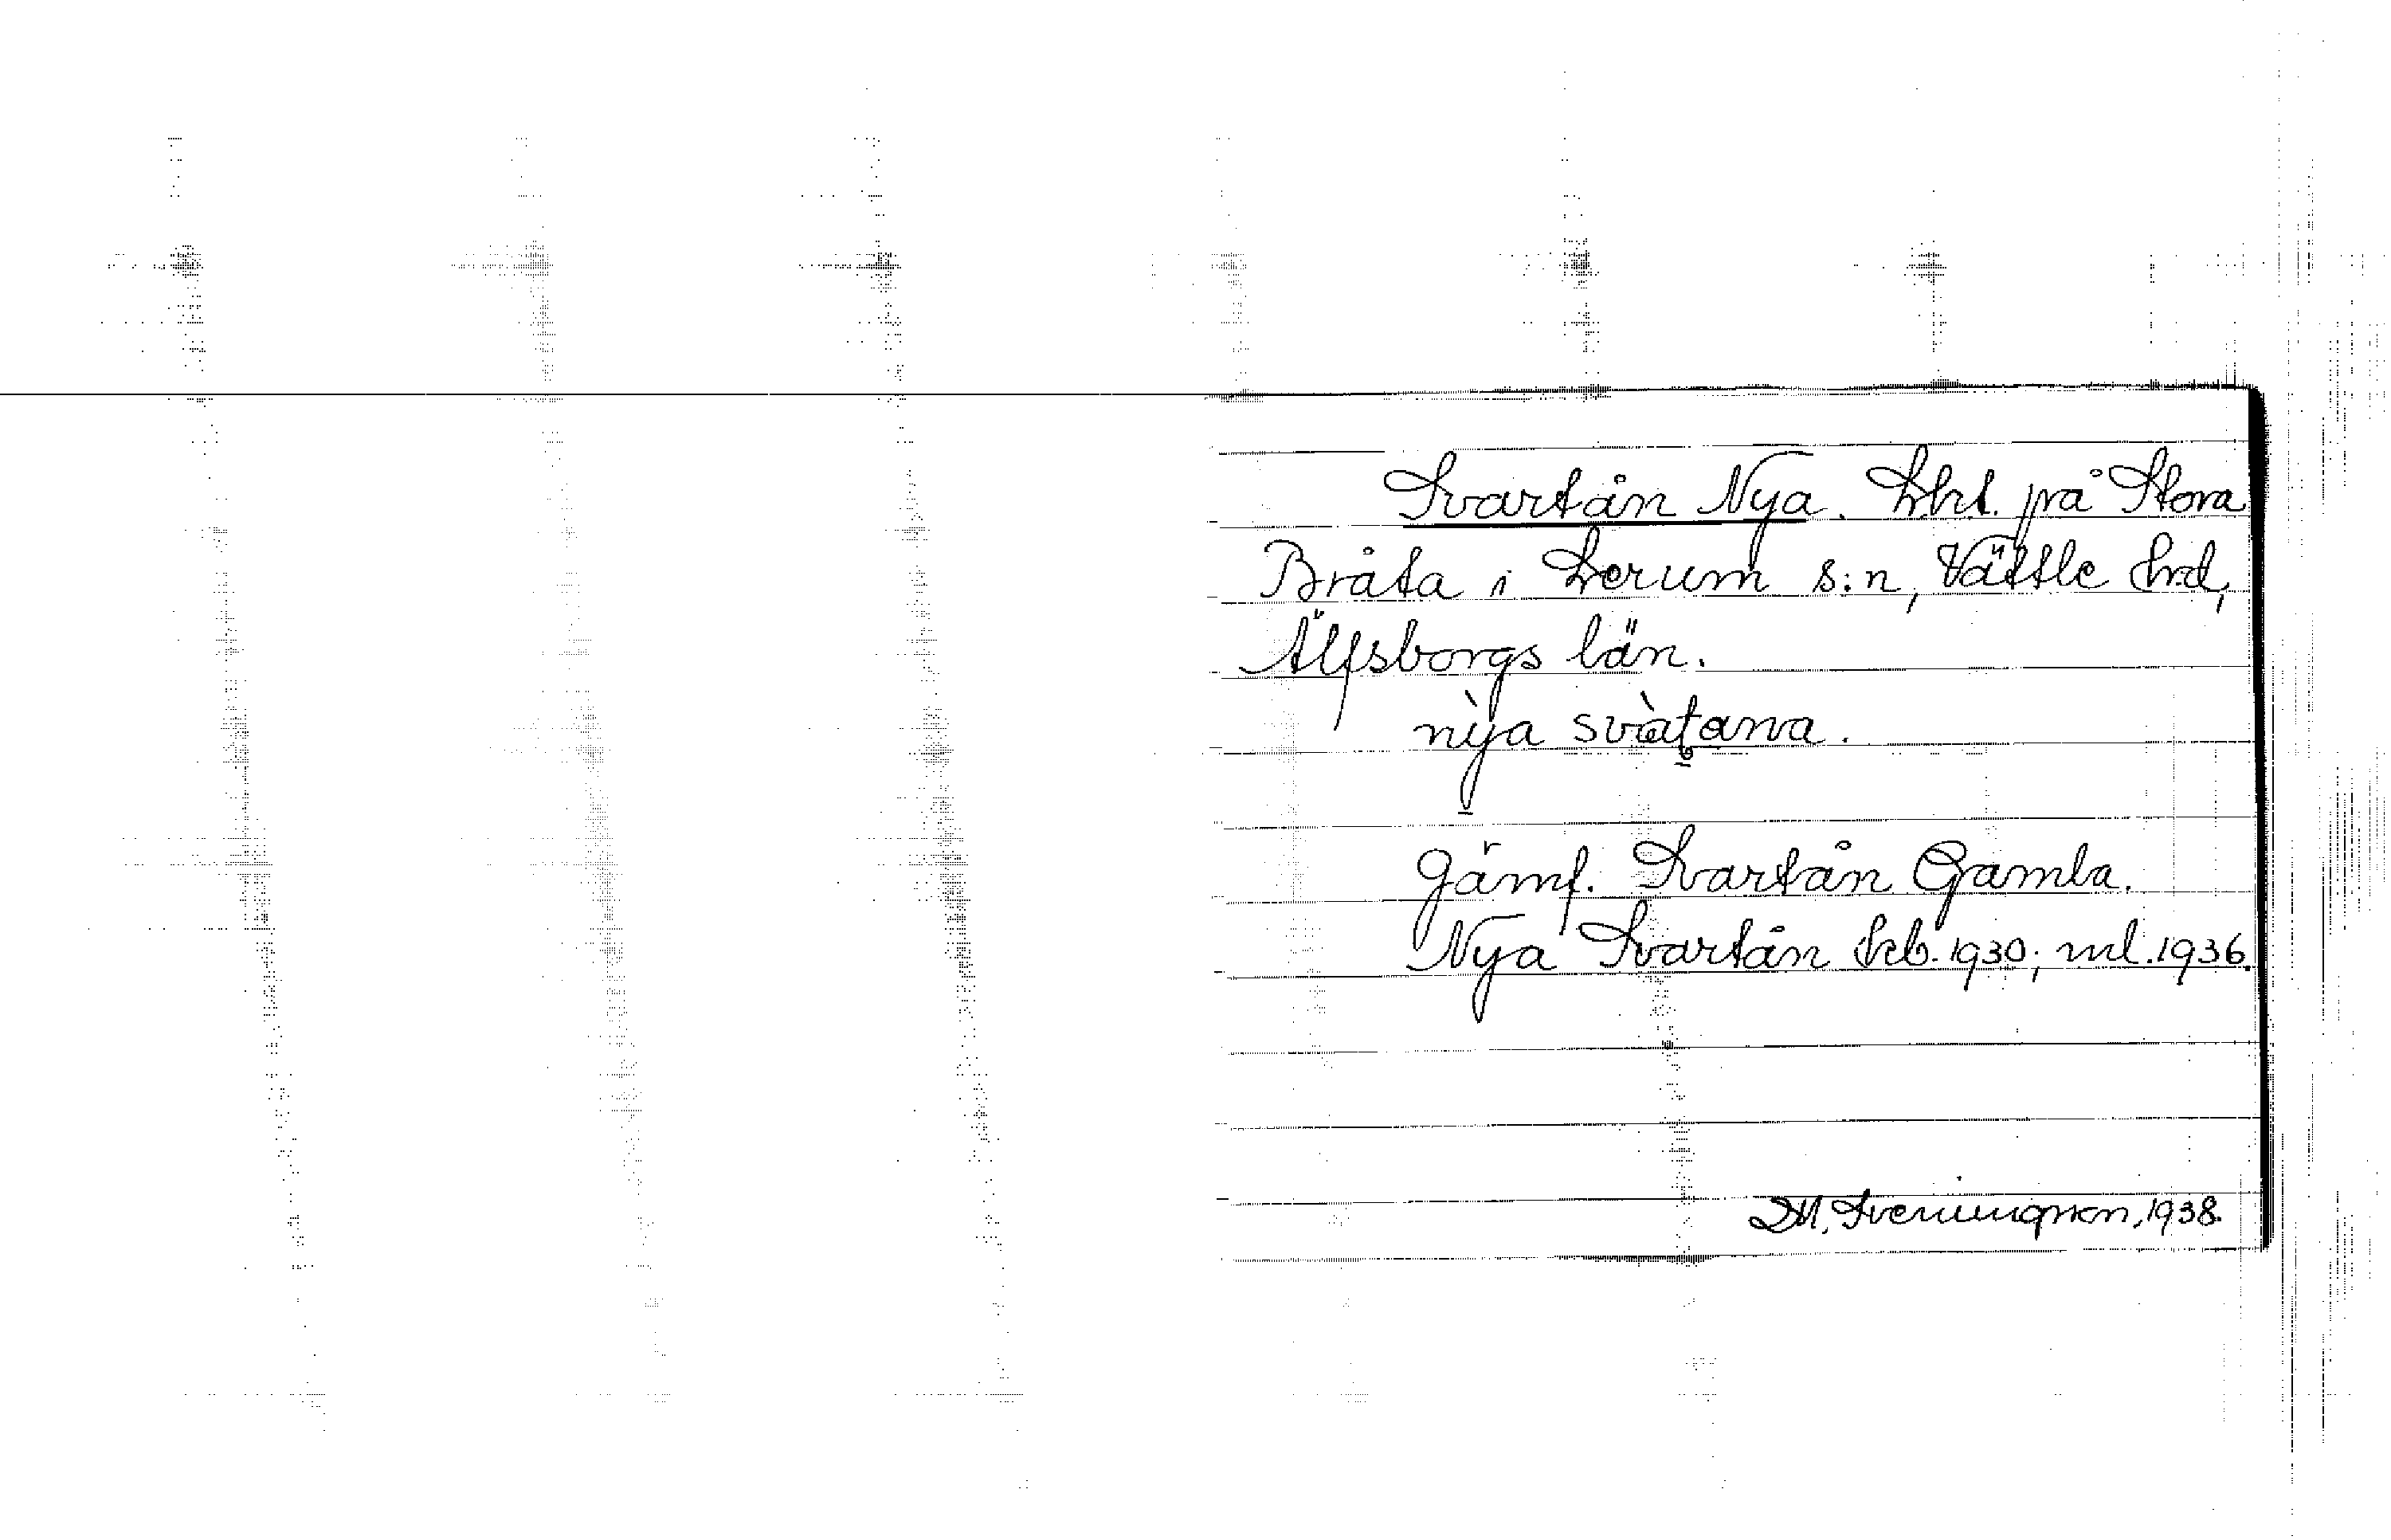 Svartån Nya. Lht. på Stora
Bråta i Lerum s:n, Vättle hrd,
Älfsborgs län.
nỳa svàtana.
Jämf. Svartån Gamla.
Nya Svartån feb. 1930; ml. 1936.
DM. Sverningson, 1938.